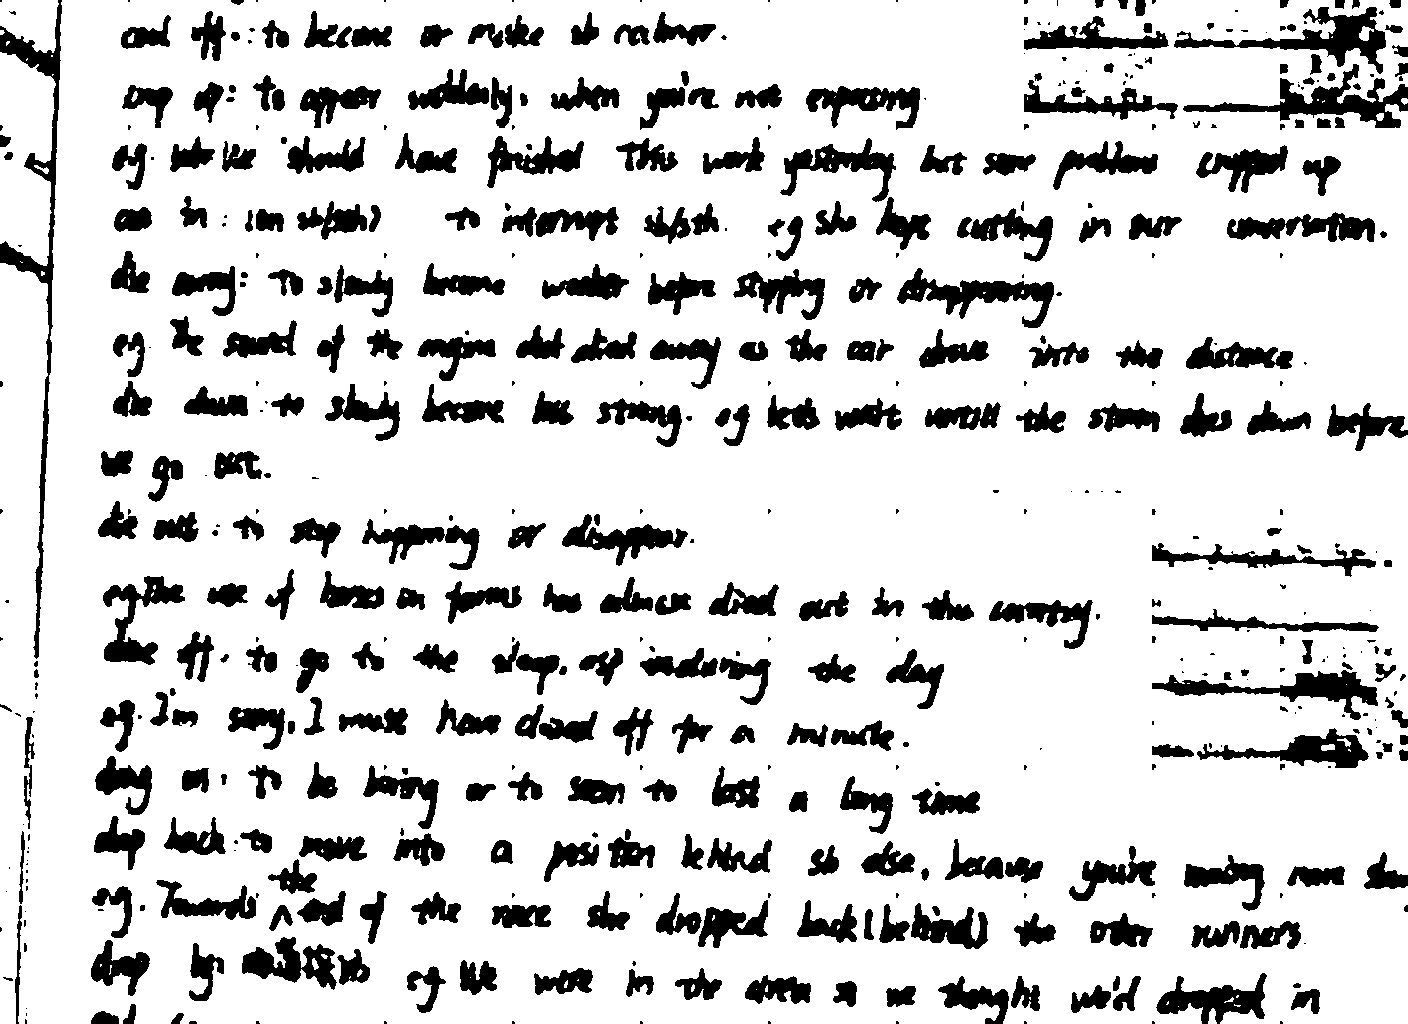 cool off : to become or make sb calmer.
crop up : to appear suddenly, when you're not expecting
eg. We should have finished this work yesterday but some problems cropped up
cut in : (on sb/sth) to interrupt sb/sth. eg She kept cutting in our conversation.
die away : to slowly become weaker before stopping or disappearing.
eg. The sound of the engine died away as the car drove into the distance.
die down to slowly become less strong. eg let's wait untill the storm dies down before
we go out.
die out : to stop happening or disappear.
eg The use of horses on farms has almost died out in this country.
doze off. to go to the sleep, esp during the day
eg. I'm sorry, I must have dozed off for a minute.
drag on. to be boring or to seem to last a long time
drop back to move into a position behind sb else, because you're moving more
eg. Towards the end of the race she dropped back (behind) the other runners
drop by eg We were in the area so we thought we'd dropped in
and